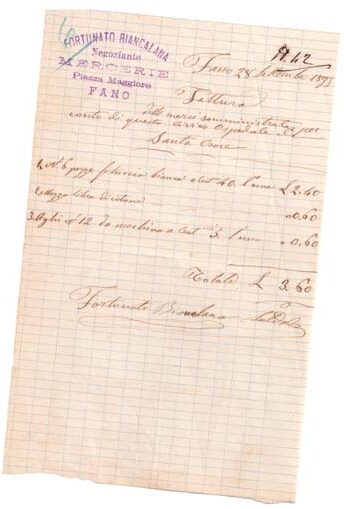 FORTUNATO BIANCALANA
Negoziante
MERCERIE
Piazza Maggiore
FANO
N. 42
Fano 28 Settembre 1893
Fattura
merci somministrate per
conto di questo Civico Ospedale di
Santa Croce
1. N. 6 pezze fettuccia bianca a cent 40 l'una £ 2.40
2. Mezza libra di cotone " 0.60
3. N. 12 da macchina a Cent 5 l'uno " 0.60
Totale £ 3.60
Fortunato Biancalana Saldato